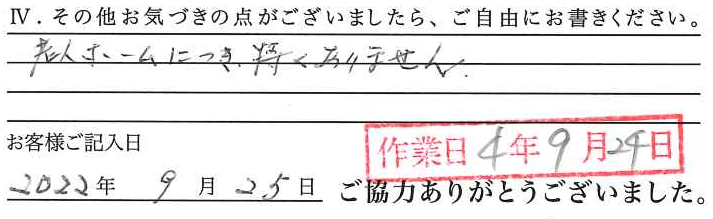 Ⅳ．その他お気づきの点がございましたら、ご自由にお書きください。
老人ホームにつき、特くありません。
お客様ご記入日
作業日 4年 9月 24日
2022年 9月 25日 ご協力ありがとうございました。